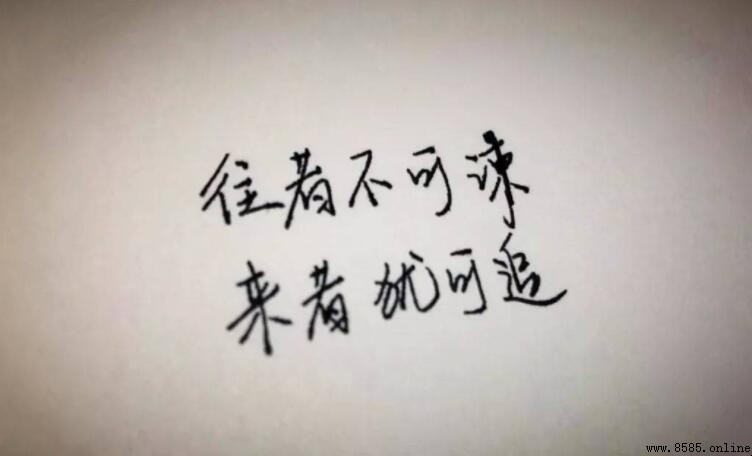 往者不可谏
来者犹可追
www.8585.online